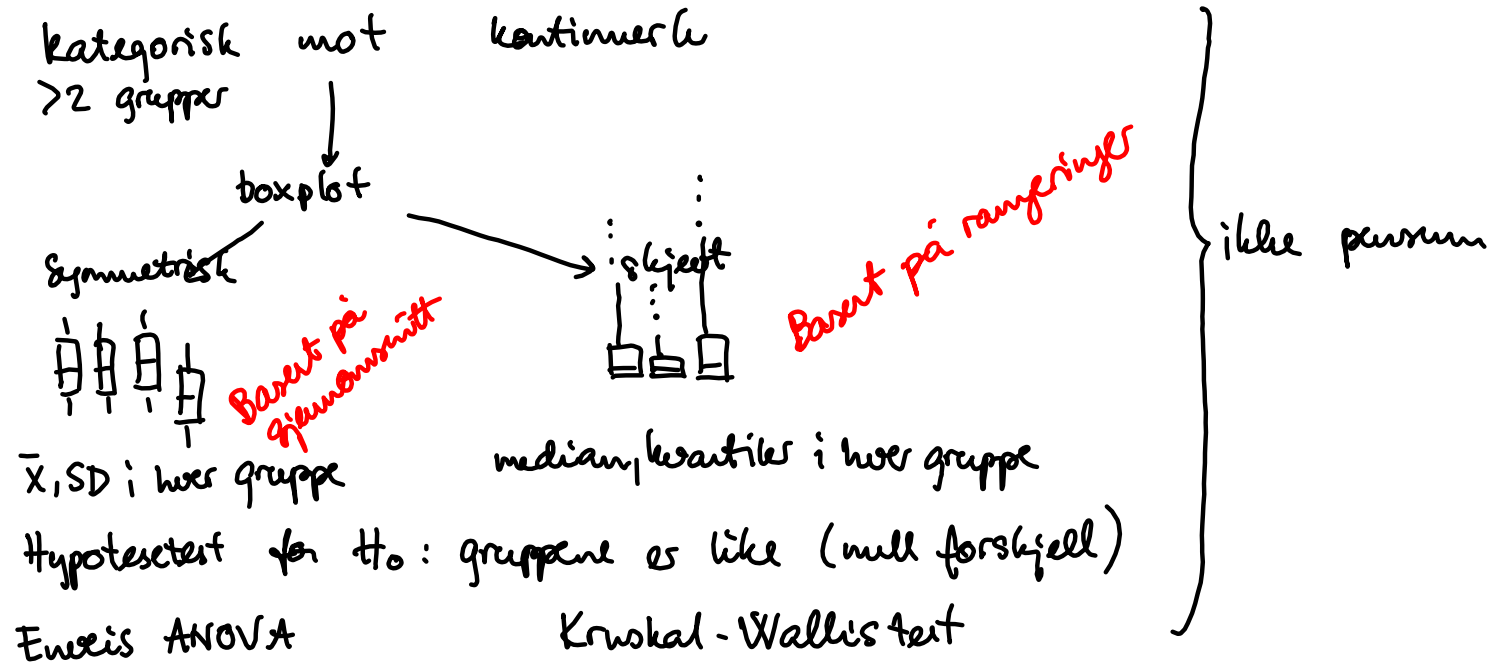 kategorisk mot kontinuerlig
>2 grupper
boxplot
symmetrisk
skjevt
Basert på
gjennomsnitt
Basert på rangeringer
x̄, SD i hver gruppe
median, kvartiler i hver gruppe
Hypotesetest for H₀: gruppene er like (null forskjell)
Enveis ANOVA
Kruskal-Wallis test
ikke pensum